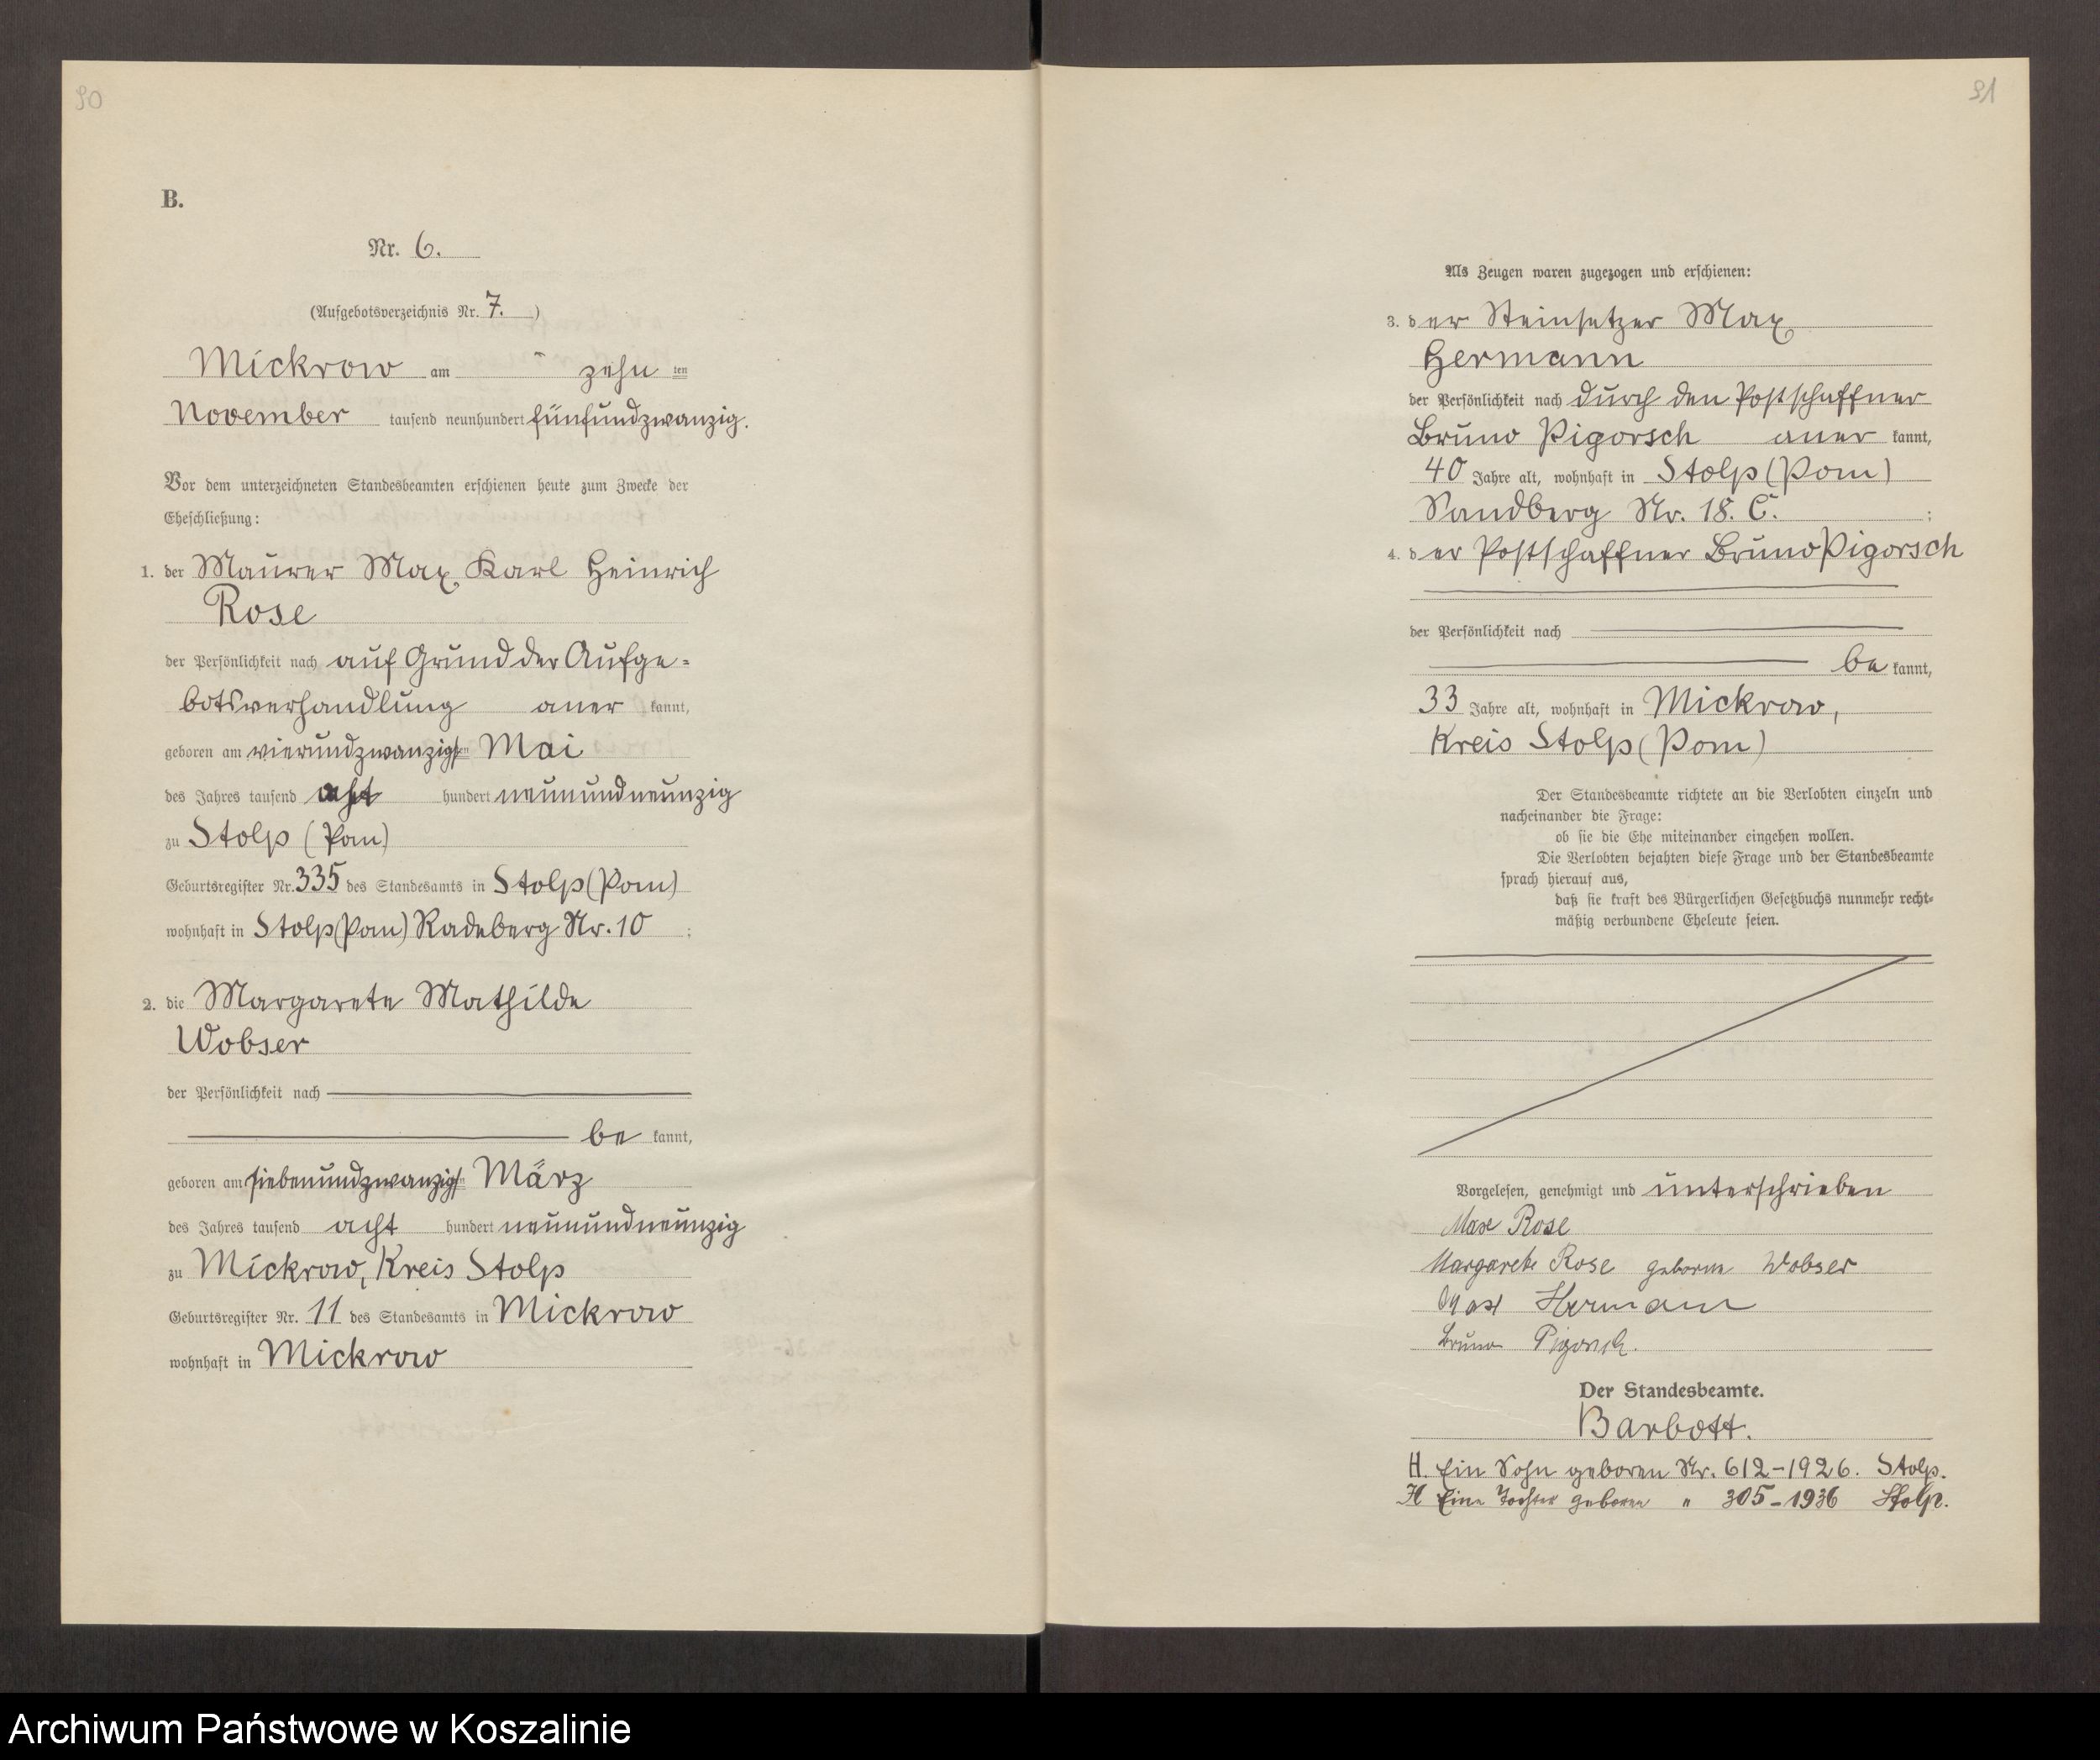 90
B.
Nr. 6.
(Aufgebotsverzeichnis Nr. 7.)
Mickrow am zehn ten
November tausend neunhundert fünfundzwanzig.
Vor dem unterzeichneten Standesbeamten erschienen heute zum Zwecke der
Eheschließung:
1. der Maurer Max Karl Heinrich
Rose
der Persönlichkeit nach auf Grund der Aufge=
botsverhandlung aner kannt,
geboren am vierundzwanzigsten Mai
des Jahres tausend acht hundert neunundneunzig
zu Stolp (Pom)
Geburtsregister Nr. 335 des Standesamts in Stolp (Pom)
wohnhaft in Stolp (Pom) Radeberg Nr. 10 ;
2. die Margarete Mathilde
Wobser
der Persönlichkeit nach
be kannt,
geboren am siebenundzwanzigsten März
des Jahres tausend acht hundert neunundneunzig
zu Mickrow, Kreis Stolp
Geburtsregister Nr. 11 des Standesamts in Mickrow
wohnhaft in Mickrow
91
Als Zeugen waren zugezogen und erschienen:
3. der Steinsetzer Max
Hermann
der Persönlichkeit nach durch den Postschaffner
Bruno Pigorsch aner kannt,
40 Jahre alt, wohnhaft in Stolp (Pom)
Sandberg Nr. 18. C. ;
4. der Postschaffner Bruno Pigorsch
der Persönlichkeit nach
be kannt,
33 Jahre alt, wohnhaft in Mickrow,
Kreis Stolp (Pom)
Der Standesbeamte richtete an die Verlobten einzeln und
nacheinander die Frage:
ob sie die Ehe miteinander eingehen wollen.
Die Verlobten bejahten diese Frage und der Standesbeamte
sprach hierauf aus,
daß sie kraft des Bürgerlichen Gesetzbuchs nunmehr recht-
mäßig verbundene Eheleute seien.
Vorgelesen, genehmigt und unterschrieben
Max Rose
Margarete Rose geborene Wobser
Max Hermann
Bruno Pigorsch.
Der Standesbeamte.
Barbott.
H. Ein Sohn geboren Nr. 612-1926. Stolp.
H Eine Tochter geboren " 305-1936 Stolp.
Archiwum Państwowe w Koszalinie